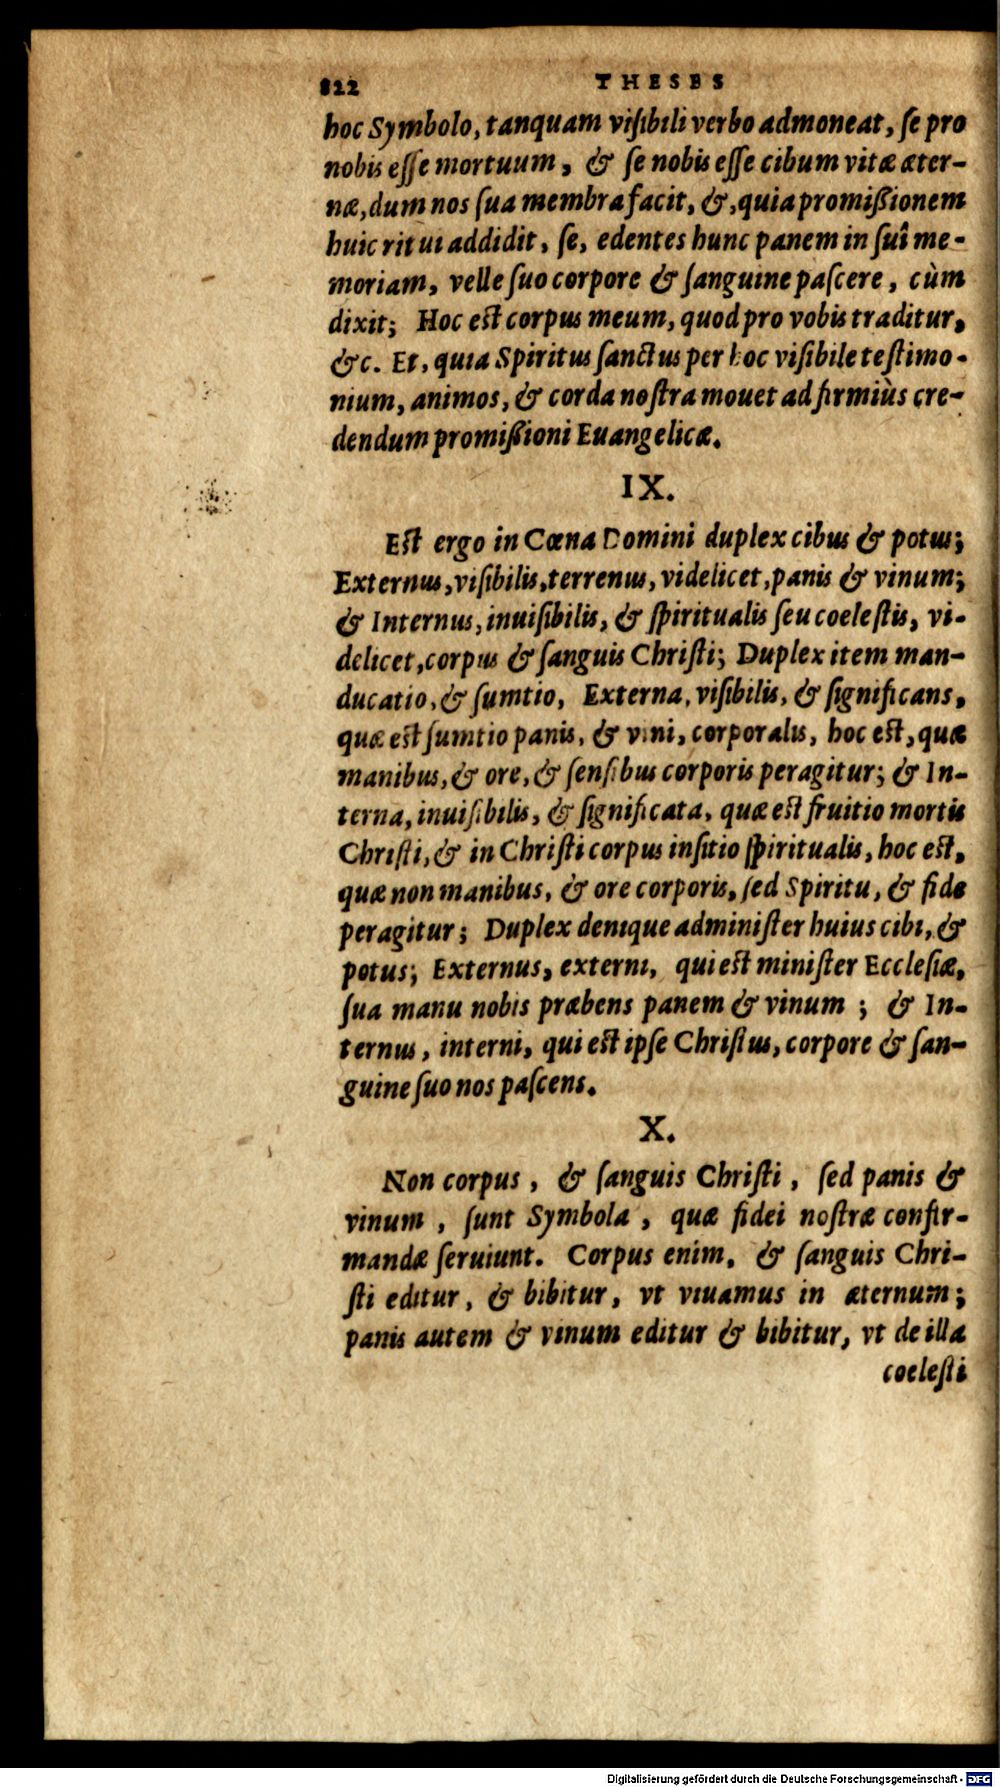 822 THESES
hoc Symbolo, tanquam visibili verbo admoneat, se pro
nobis esse mortuum, & se nobis esse cibum vitæ æter-
næ, dum nos sua membra facit, &, quia promißionem
huic ritui addidit, se, edentes hunc panem in suî me-
moriam, velle suo corpore & sanguine pascere, cùm
dixit; Hoc est corpus meum, quod pro vobis traditur,
&c. Et, quia Spiritus sanctus per hoc visibile testimo-
nium, animos, & corda nostra mouet ad firmiùs cre-
dendum promißioni Euangelicæ.
IX.
Est ergo in Cœna Domini duplex cibus & potus;
Externus, visibilis, terrenus, videlicet, panis & vinum;
& Internus, inuisibilis, & spiritualis seu coelestis, vi-
delicet, corpus & sanguis Christi; Duplex item man-
ducatio, & sumtio, Externa, visibilis, & significans,
quæ est sumtio panis, & vini, corporalis, hoc est, quæ
manibus, & ore, & sensibus corporis peragitur; & In-
terna, inuisibilis, & significata, quæ est fruitio mortis
Christi, & in Christi corpus insitio spiritualis, hoc est,
quæ non manibus, & ore corporis, sed Spiritu, & fide
peragitur; Duplex denique administer huius cibi, &
potus; Externus, externi, qui est minister Ecclesiæ,
sua manu nobis præbens panem & vinum ; & In-
ternus, interni, qui est ipse Christus, corpore & san-
guine suo nos pascens.
X.
Non corpus, & sanguis Christi, sed panis &
vinum, sunt Symbola, quæ fidei nostræ confir-
mandæ seruiunt. Corpus enim, & sanguis Chri-
sti editur, & bibitur, vt viuamus in æternum;
panis autem & vinum editur & bibitur, vt de illa
coelesti
Digitalisierung gefördert durch die Deutsche Forschungsgemeinschaft - DFG